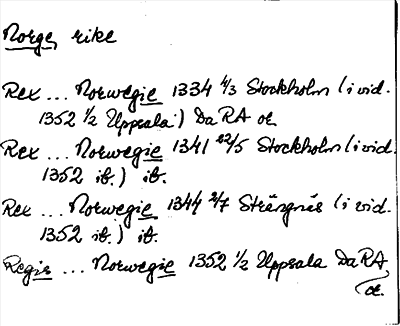 Norge, rike
Rex ... Norwegie 1334 4/3 Stockholm (i vid.
1352 1/2 Uppsala) DaRA or.
Rex ... Norwegie 1341 22/5 Stockholm (i vid.
1352 ib.) ib.
Rex ... Norwegie 1344 2/7 Strängnäs (i vid.
1352 ib.) ib.
Regis ... Norwegie 1352 1/2 Uppsala DaRA
or.